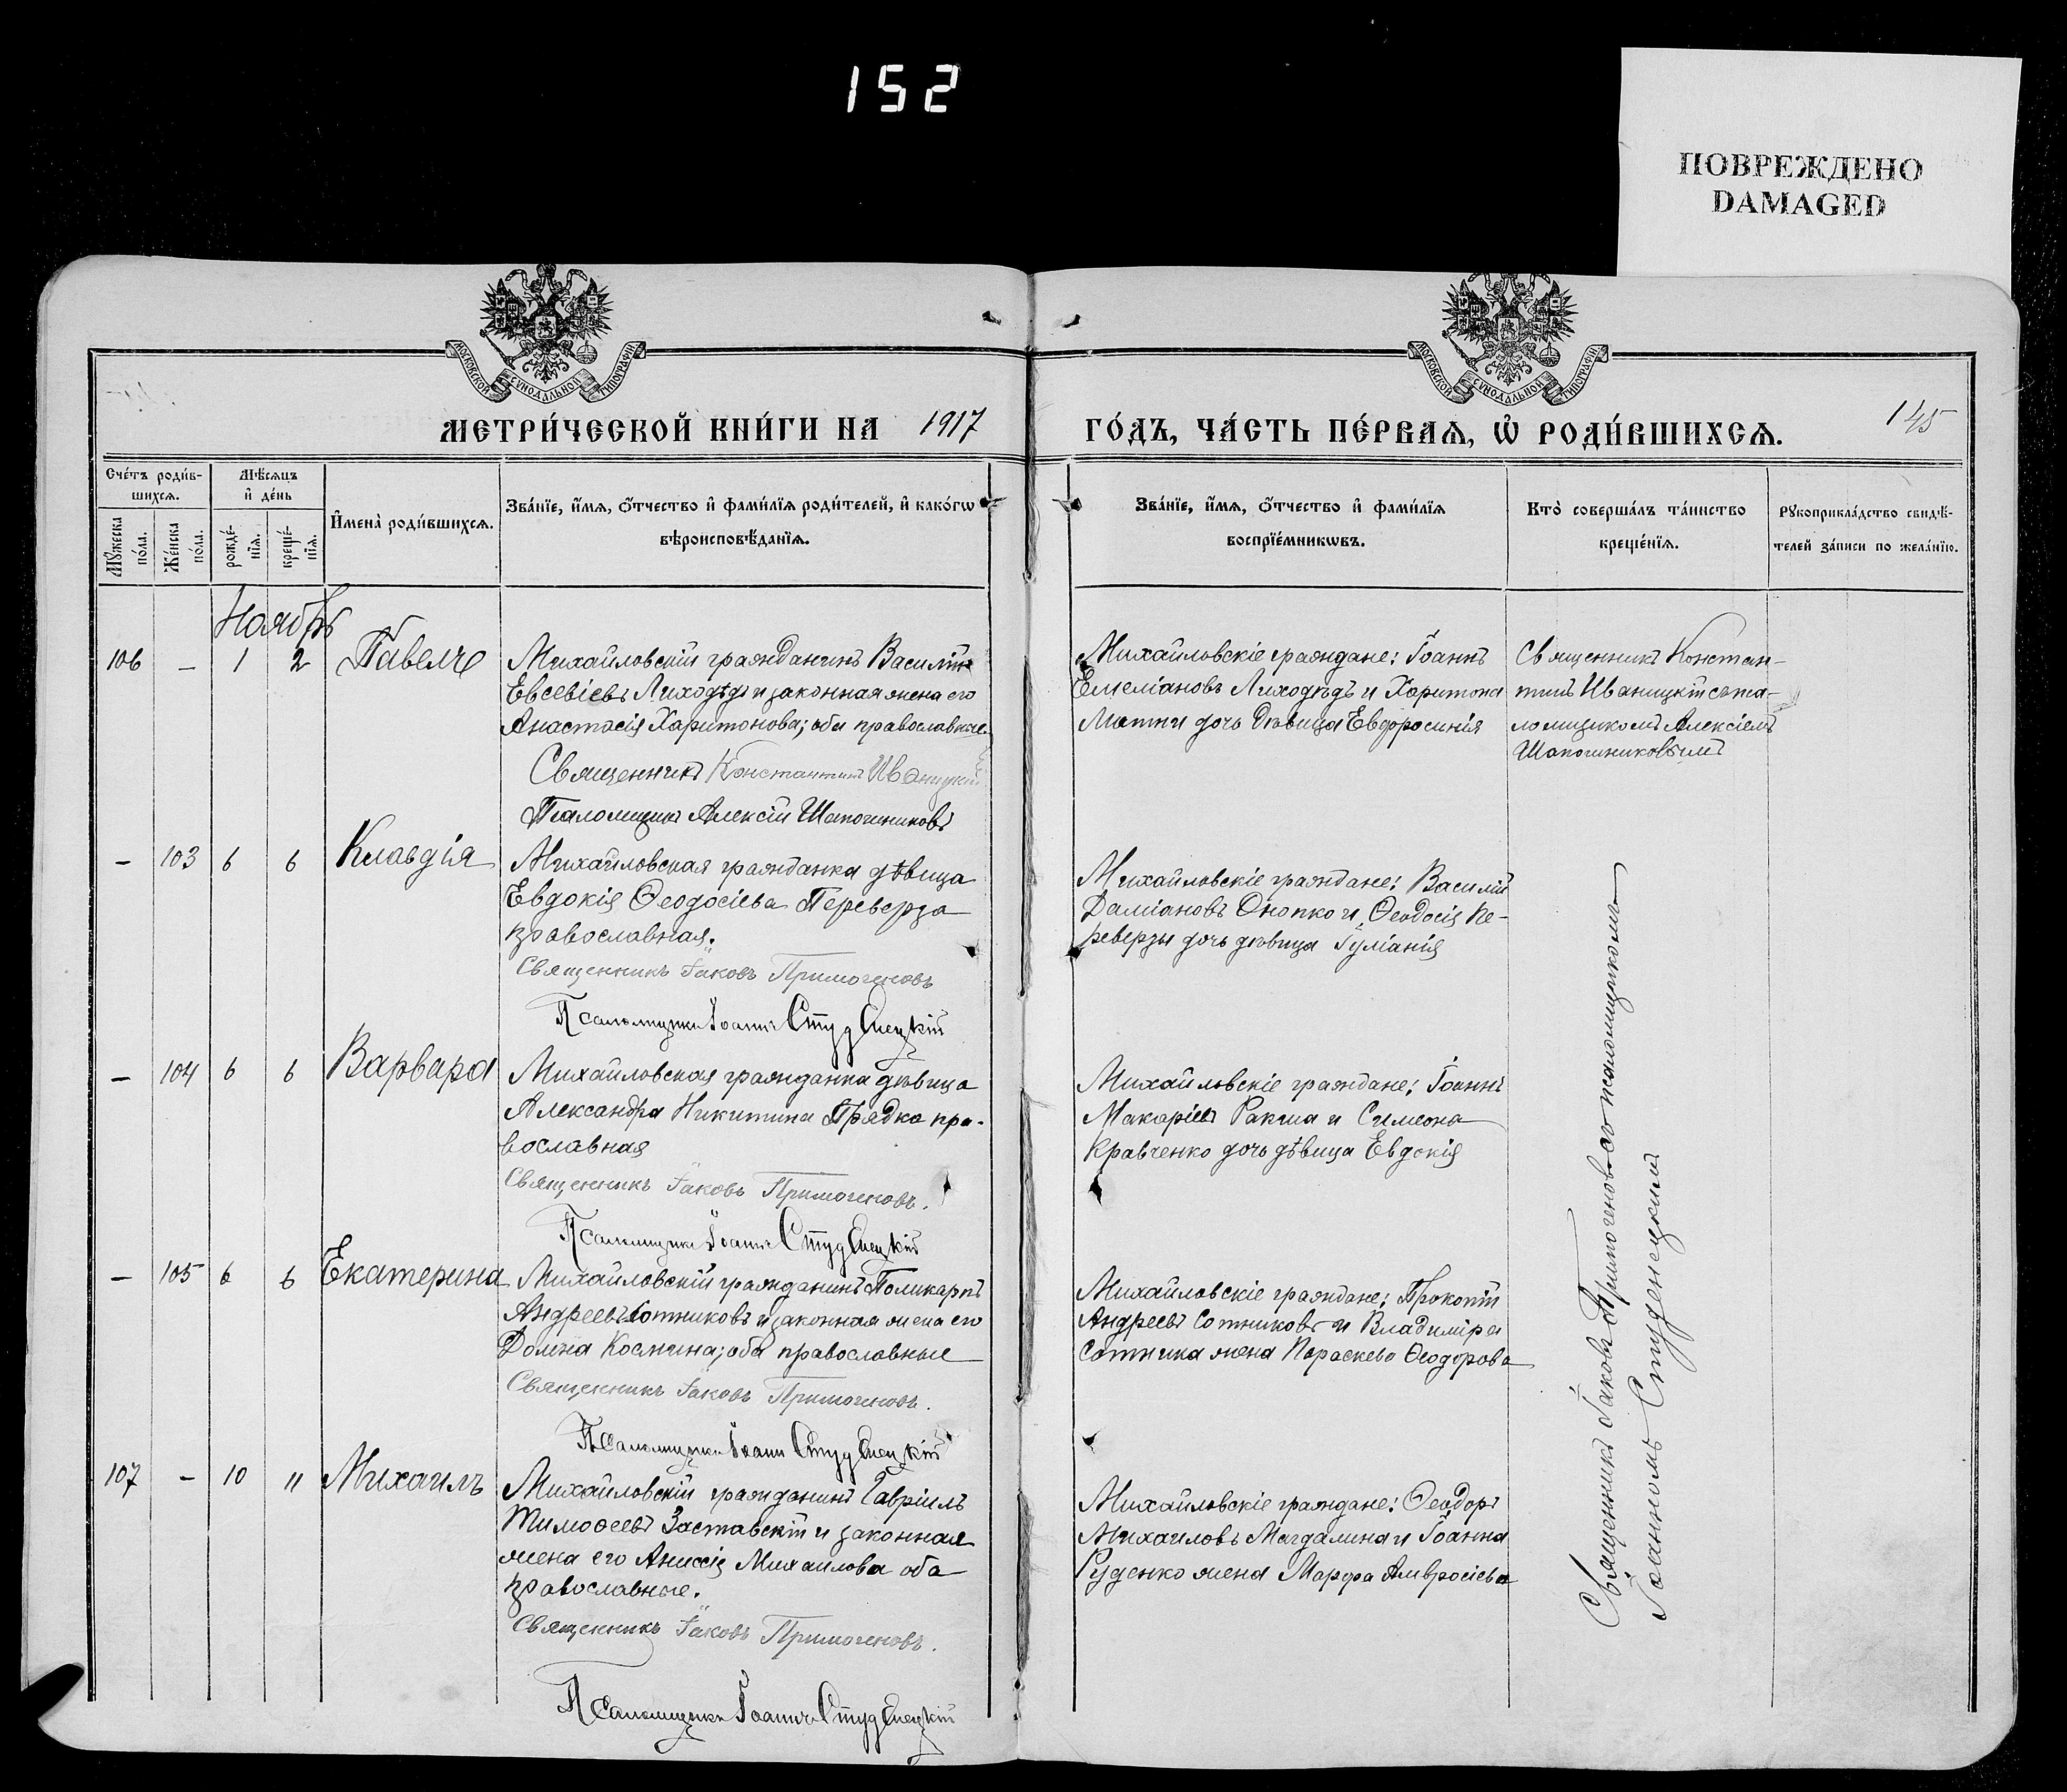 152
ПОВРЕЖДЕНО
DAMAGED
МОСКОВСКОЙ СѴНОДАЛЬНОЙ ТИПОГРАФІИ
МОСКОВСКОЙ СѴНОДАЛЬНОЙ ТИПОГРАФІИ
МЕТРИ́ЧЕСКОЙ КНИ́ГИ НА 1917
ГО́ДЪ, ЧА́СТЬ ПЕ́РВАѦ, Ѡ҆ РОДИ́ВШИХСѦ.
145
Сче́тъ роди́в-
шихсѧ.
Мѣ́сѧцъ
и҆ де́нь
Мꙋ́жеска
по́ла.
Же́нска
по́ла.
рожде́-
нїѧ.
креще́-
нїѧ.
И҆мена̀ роди́вшихсѧ.
Зва́нїе, и҆́мѧ, ѻ҆́тчество и҆ фами́лїѧ роди́телей, и҆ како́гѡ
вѣроисповѣ́данїѧ.
Зва́нїе, и҆́мѧ, ѻ҆́тчество и҆ фами́лїѧ
воспрїе́мникѡвъ.
Кто̀ соверша́лъ та́инство
креще́нїѧ.
Рꙋкоприкла́дство свидѣ́-
телей за́писи по жела́нїю.
Ноябрь
106 – 1 2 Павелъ
Михайловскій гражданинъ Василій
Евсевіевъ Лиходѣдъ и законная жена его
Анастасія Харитонова; оба православные.
Священникъ Константинъ Иваницкій
Псаломщикъ Алексій Шапошниковъ
Михайловскіе граждане: Іоаннъ
Емеліановъ Лиходѣдъ и Харитона
дочь дѣвица Евфросинія
Священникъ Констан-
тинъ Иваницкій съ пса-
ломщикомъ Алексіемъ
Шапошниковымъ
– 103 6 6 Клавдія
Михайловская гражданка дѣвица
Евдокія Ѳеодосіева Переверза
православная.
Священникъ Іаковъ Примогеновъ
Псаломщикъ Іоаннъ Студенецкій
Михайловскіе граждане: Василій
Даміановъ Онопко и Ѳеодосія Пе-
реверзы дочь дѣвица Іуліанія
– 104 6 6 Варвара
Михайловская гражданка дѣвица
Александра Никитина Прядка пра-
вославная
Священникъ Іаковъ Примогеновъ.
Псаломщикъ Іоаннъ Студенецкій
Михайловскіе граждане: Іоаннъ
Макаріевъ Ракша и Симеона
Кравченко дочь дѣвица Евдокія
– 105 6 6 Екатерина
Михайловскій гражданинъ Поликарпъ
Андреевъ Сотниковъ и законная жена его
Домна Космина; оба православные
Священникъ Іаковъ Примогеновъ.
Псаломщикъ Іоаннъ Студенецкій
Михайловскіе граждане: Прокопій
Андреевъ Сотниковъ и Владиміра
Сотника жена Параскева Ѳеодорова
107 – 10 11 Михаилъ
Михайловскій гражданинъ Гавріилъ
Тимоѳеевъ Заставскій и законная
жена его Анисія Михаилова оба
православные.
Священникъ Іаковъ Примогеновъ.
Псаломщикъ Іоаннъ Студенецкій
Михайловскіе граждане: Ѳеодоръ
Михаиловъ Магдалина и Іоанна
Руденко жена Марфа Амвросіева
Священникъ Іаковъ Примогеновъ съ псаломщикомъ
Іоанномъ Студенецкимъ